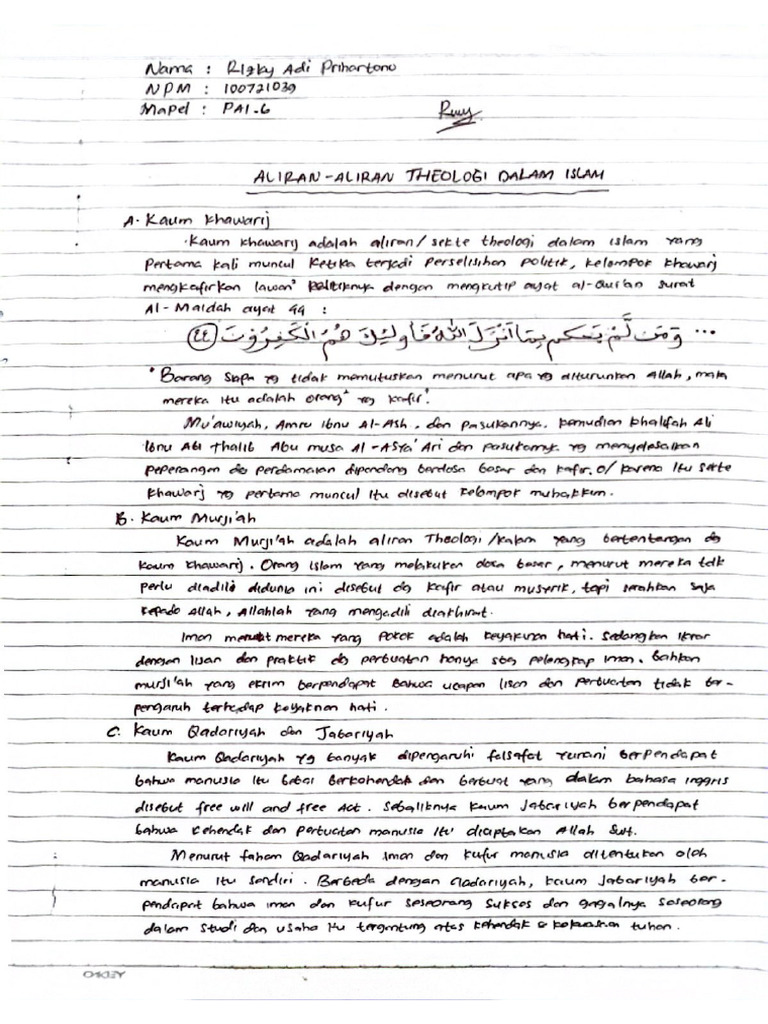 Nama : Rizky Adi Prihartono
NPM : 100721039
Mapel : PAI-6
ALIRAN-ALIRAN THEOLOGI DALAM ISLAM
A. Kaum Khawarij
Kaum khawarij adalah aliran/ sekte theologi dalam islam yang
pertama kali muncul ketika terjadi perselisihan politik, kelompok khawarij
mengkafirkan lawan² politiknya dengan mengkutip ayat al-Qur'an surat
Al-Maidah ayat 44 :
... وَمَن لَّمْ يَحْكُم بِمَا أَنْزَلَ اللهُ فَأُولَٰئِكَ هُمُ الْكَٰفِرُونَ (٤٤)
"Barang siapa yg tidak memutuskan menurut apa yg diturunkan Allah, maka
mereka itu adalah orang² yg kafir".
Mu'awiyah, Amru ibnu Al-Ash, dan pasukannya. kemudian khalifah Ali
ibnu Abi Thalib Abu musa Al-Asya'Ari dan pasukannya yg menyelesaikan
peperangan dg perdamaian dipandang berdosa besar dan kafir. o/ karena itu sekte
khawarj yg pertama muncul itu disebut kelompok muhakkim.
B. Kaum Murji'ah
Kaum Murji'ah adalah aliran Theologi/kalam yang bertentangan dg
kaum khawarij. Orang islam yang melakukan dosa besar, menurut mereka tdk
perlu diadili didunia ini disebut dg kafir atau musyrik, tapi serahkan saja
kepada Allah, Allahlah yang mengadili diakhirat.
Iman menurut mereka yang pokok adalah keyakinan hati. Sedangkan ikrar
dengan lisan dan praktik dg perbuatan hanya sbg pelengkap iman. Bahkan
murji'ah yang ekrim berpendapat bahwa ucapan lisan dan perbuatan tidak ber-
pengaruh terhadap keyakinan hati.
C. Kaum Qadariyah dan Jabariyah
Kaum Qadariyah yg banyak dipengaruhi falsafat yunani berpendapat
bahwa manusia itu bebas berkehendak dan berbuat yang dalam bahasa inggris
disebut free will and free Act. Sebaliknya kaum Jabariyah berpendapat
bahwa kehendak dan perbuatan manusia itu diciptakan Allah Swt.
Menurut faham Qadariyah iman dan kufur manusia ditentukan oleh
manusia itu sendiri. Berbeda dengan Qadariyah, kaum Jabariyah ber-
pendapat bahwa iman dan kufur seseorang sukses dan gagalnya seseorang
dalam studi dan usaha itu tergantung atas kehendak & kekuasaan tuhan.
OKEY